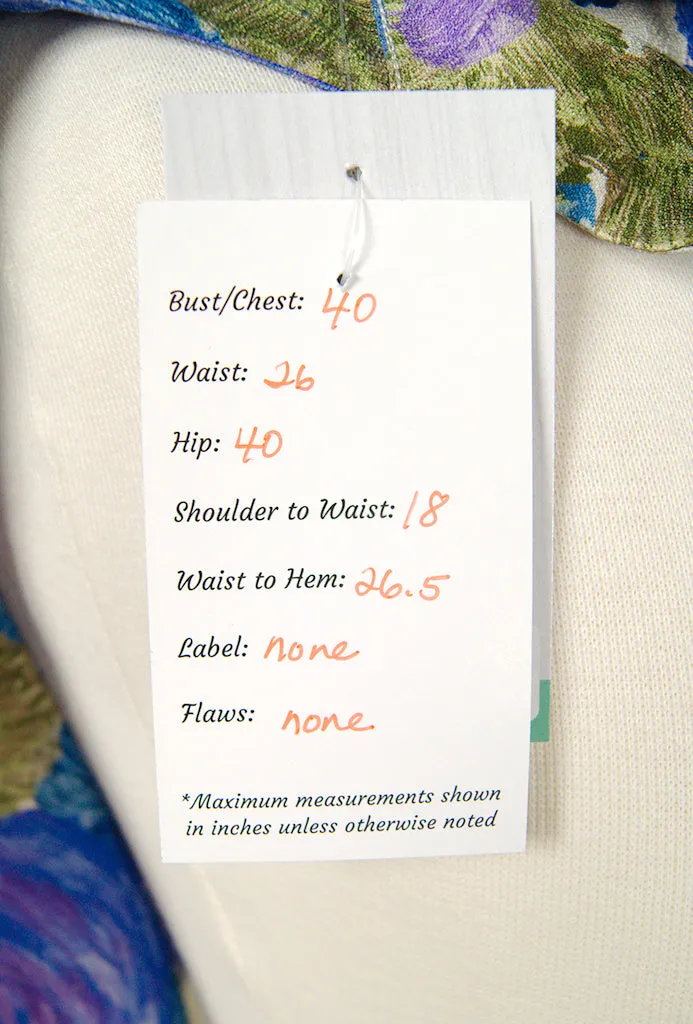 Bust/Chest: 40
Waist: 26
Hip: 40
Shoulder to Waist: 18
Waist to Hem: 26.5
Label: none
Flaws: none
*Maximum measurements shown
in inches unless otherwise noted